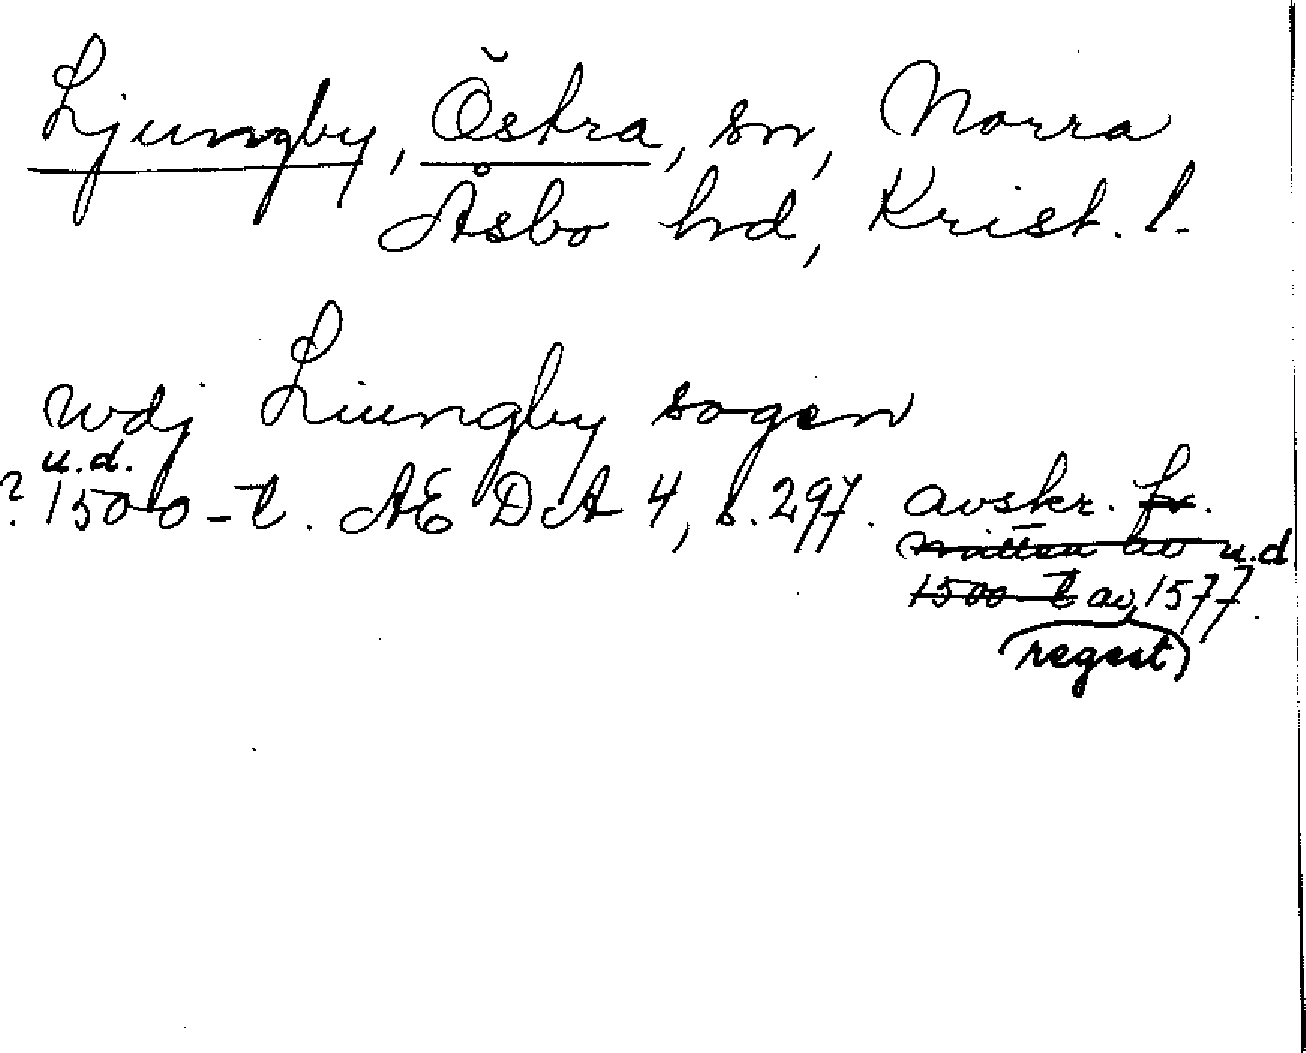 Ljungby, Östra, sn, Norra
Åsbo hrd, Krist. l.
wdj Liungby sogen
u.d.
? 1500-t. AEDA 4, s. 297. avskr. fr.
mitten av u.d
1500-t av 1577.
regest